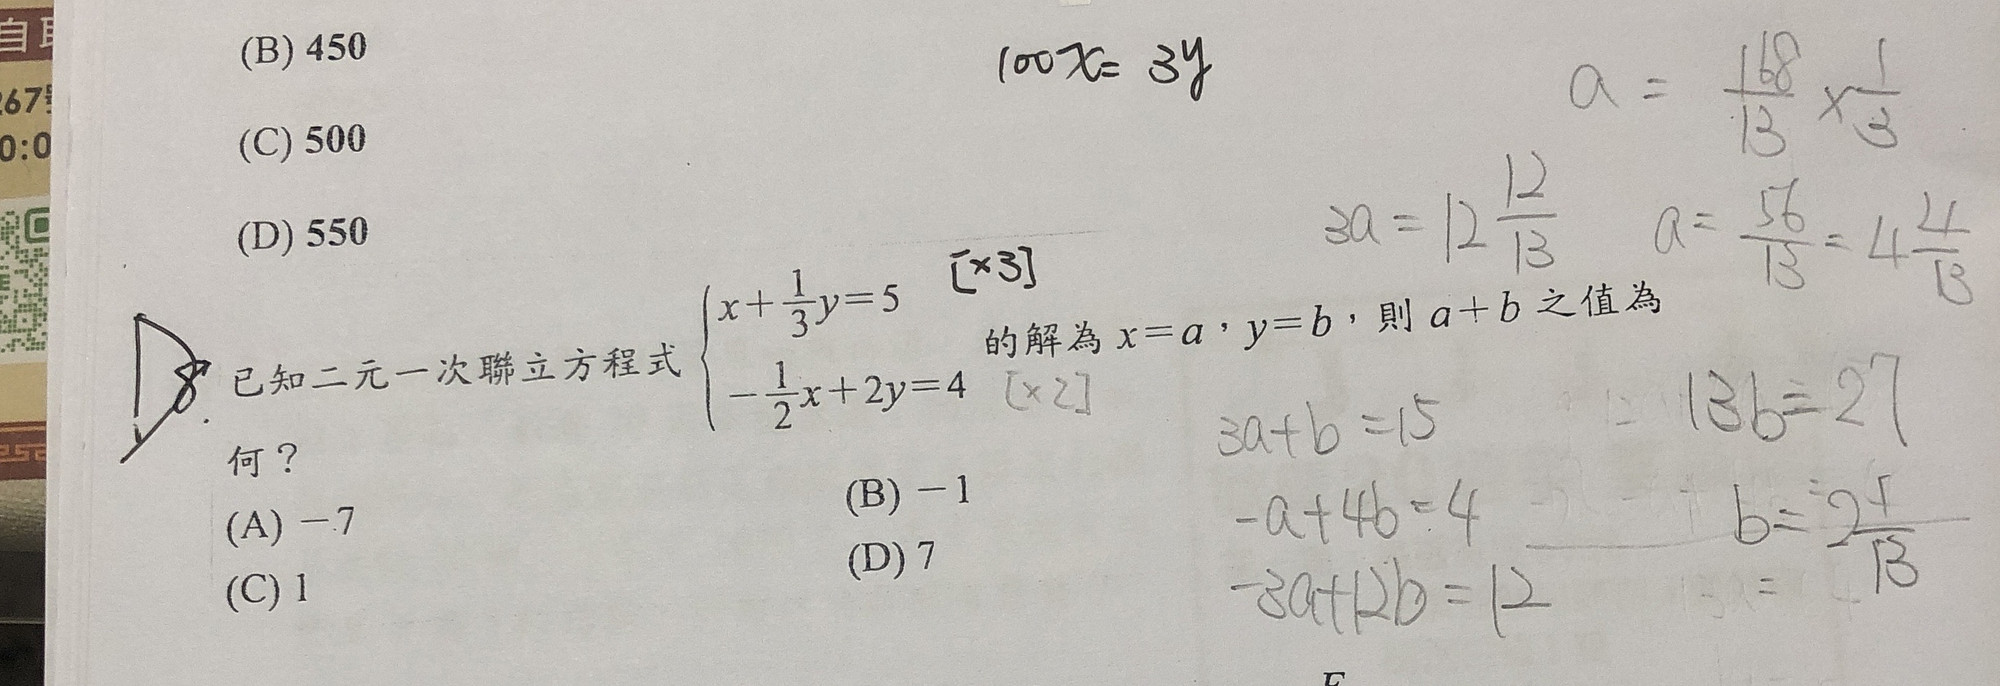 自
267號
0:0
(B) 450
(C) 500
(D) 550
100x = 3y
a = 168/13 × 1/3
3a = 12 12/13
a = 56/13 = 4 4/13
8. 已知二元一次聯立方程式 { x + 1/3 y = 5 [×3]
-1/2 x + 2y = 4 [×2]
的解為 x = a，y = b，則 a + b 之值為
何？
(A) －7
(B) －1
(C) 1
(D) 7
3a + b = 15
-a + 4b = 4
-3a + 12b = 12
13b = 27
b = 2 1/13